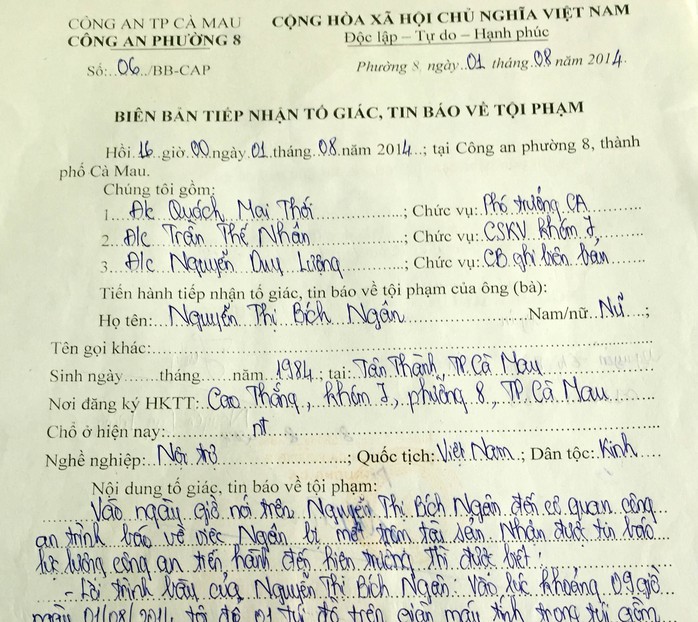 CÔNG AN TP CÀ MAU
CÔNG AN PHƯỜNG 8
Số:..06../BB-CAP
CỘNG HÒA XÃ HỘI CHỦ NGHĨA VIỆT NAM
Độc lập – Tự do – Hạnh phúc
Phường 8, ngày..01 tháng..08 năm 2014.
BIÊN BẢN TIẾP NHẬN TỐ GIÁC, TIN BÁO VỀ TỘI PHẠM
Hồi.16..giờ.00.ngày.01.tháng.08.năm 2014..; tại Công an phường 8, thành
phố Cà Mau.
Chúng tôi gồm:
1....Đ/c Quách Mai Thới...; Chức vụ: Phó trưởng CA
2...Đ/c Trần Thế Nhân...; Chức vụ: CSKV khóm I,
3...Đ/c Nguyễn Duy Lượng...; Chức vụ: CB ghi biên bản
Tiến hành tiếp nhận tố giác, tin báo về tội phạm của ông (bà):
Họ tên:...Nguyễn Thị Bích Ngân...Nam/nữ..Nữ...;
Tên gọi khác:...
Sinh ngày.......tháng.......năm 1984.; tại: Tân Thành, TP. Cà Mau
Nơi đăng ký HKTT: Cao Thắng, khóm I, phường 8, TP Cà Mau
Chổ ở hiện nay:...nt
Nghề nghiệp:..Nội trợ...; Quốc tịch: Việt Nam.; Dân tộc: Kinh
Nội dung tố giác, tin báo về tội phạm:
Vào ngày giờ nói trên Nguyễn Thị Bích Ngân đến cơ quan công
an trình báo về việc Ngân bị mất trộm tài sản. Nhận được tin báo
lực lượng công an tiến hành đến hiện trường thì được biết:
- Lời trình bày của Nguyễn Thị Bích Ngân: Vào lúc khoảng 09 giờ
ngày 01/08/2014 tôi để 01 túi đồ trên giàn máy tính trong túi gồm